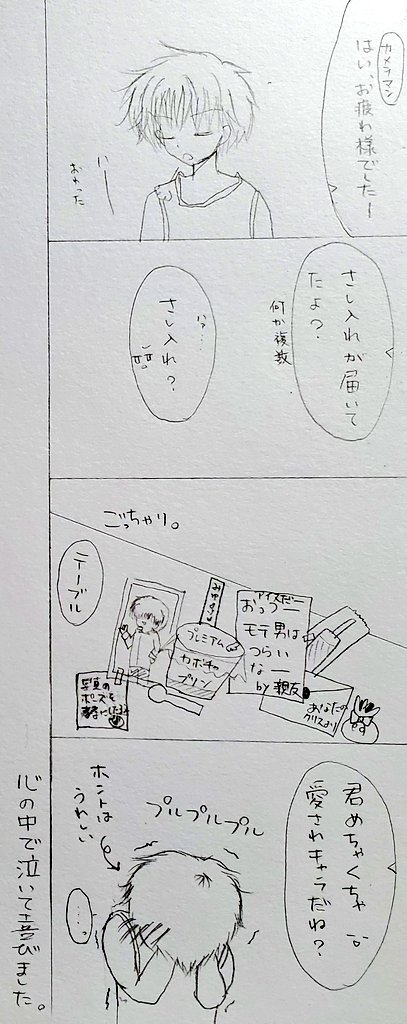 カメラマン
はい、お疲れ様でしたー
いー
おわった
さし入れが届いて
たよ?
何か複数
ハァ…
さし入れ?
ごっちゃり。
テーブル
プレミアム
カボチャ
プリン
アイスだー
おっつー
モテ男は
つらい
なー
by 親友
写真の
ポーズを
あなたの
クリスより
君めちゃくちゃ
愛されキャラだね?
プルプルプル
ホントは
うれしい
…。
心の中で泣いて喜びました。